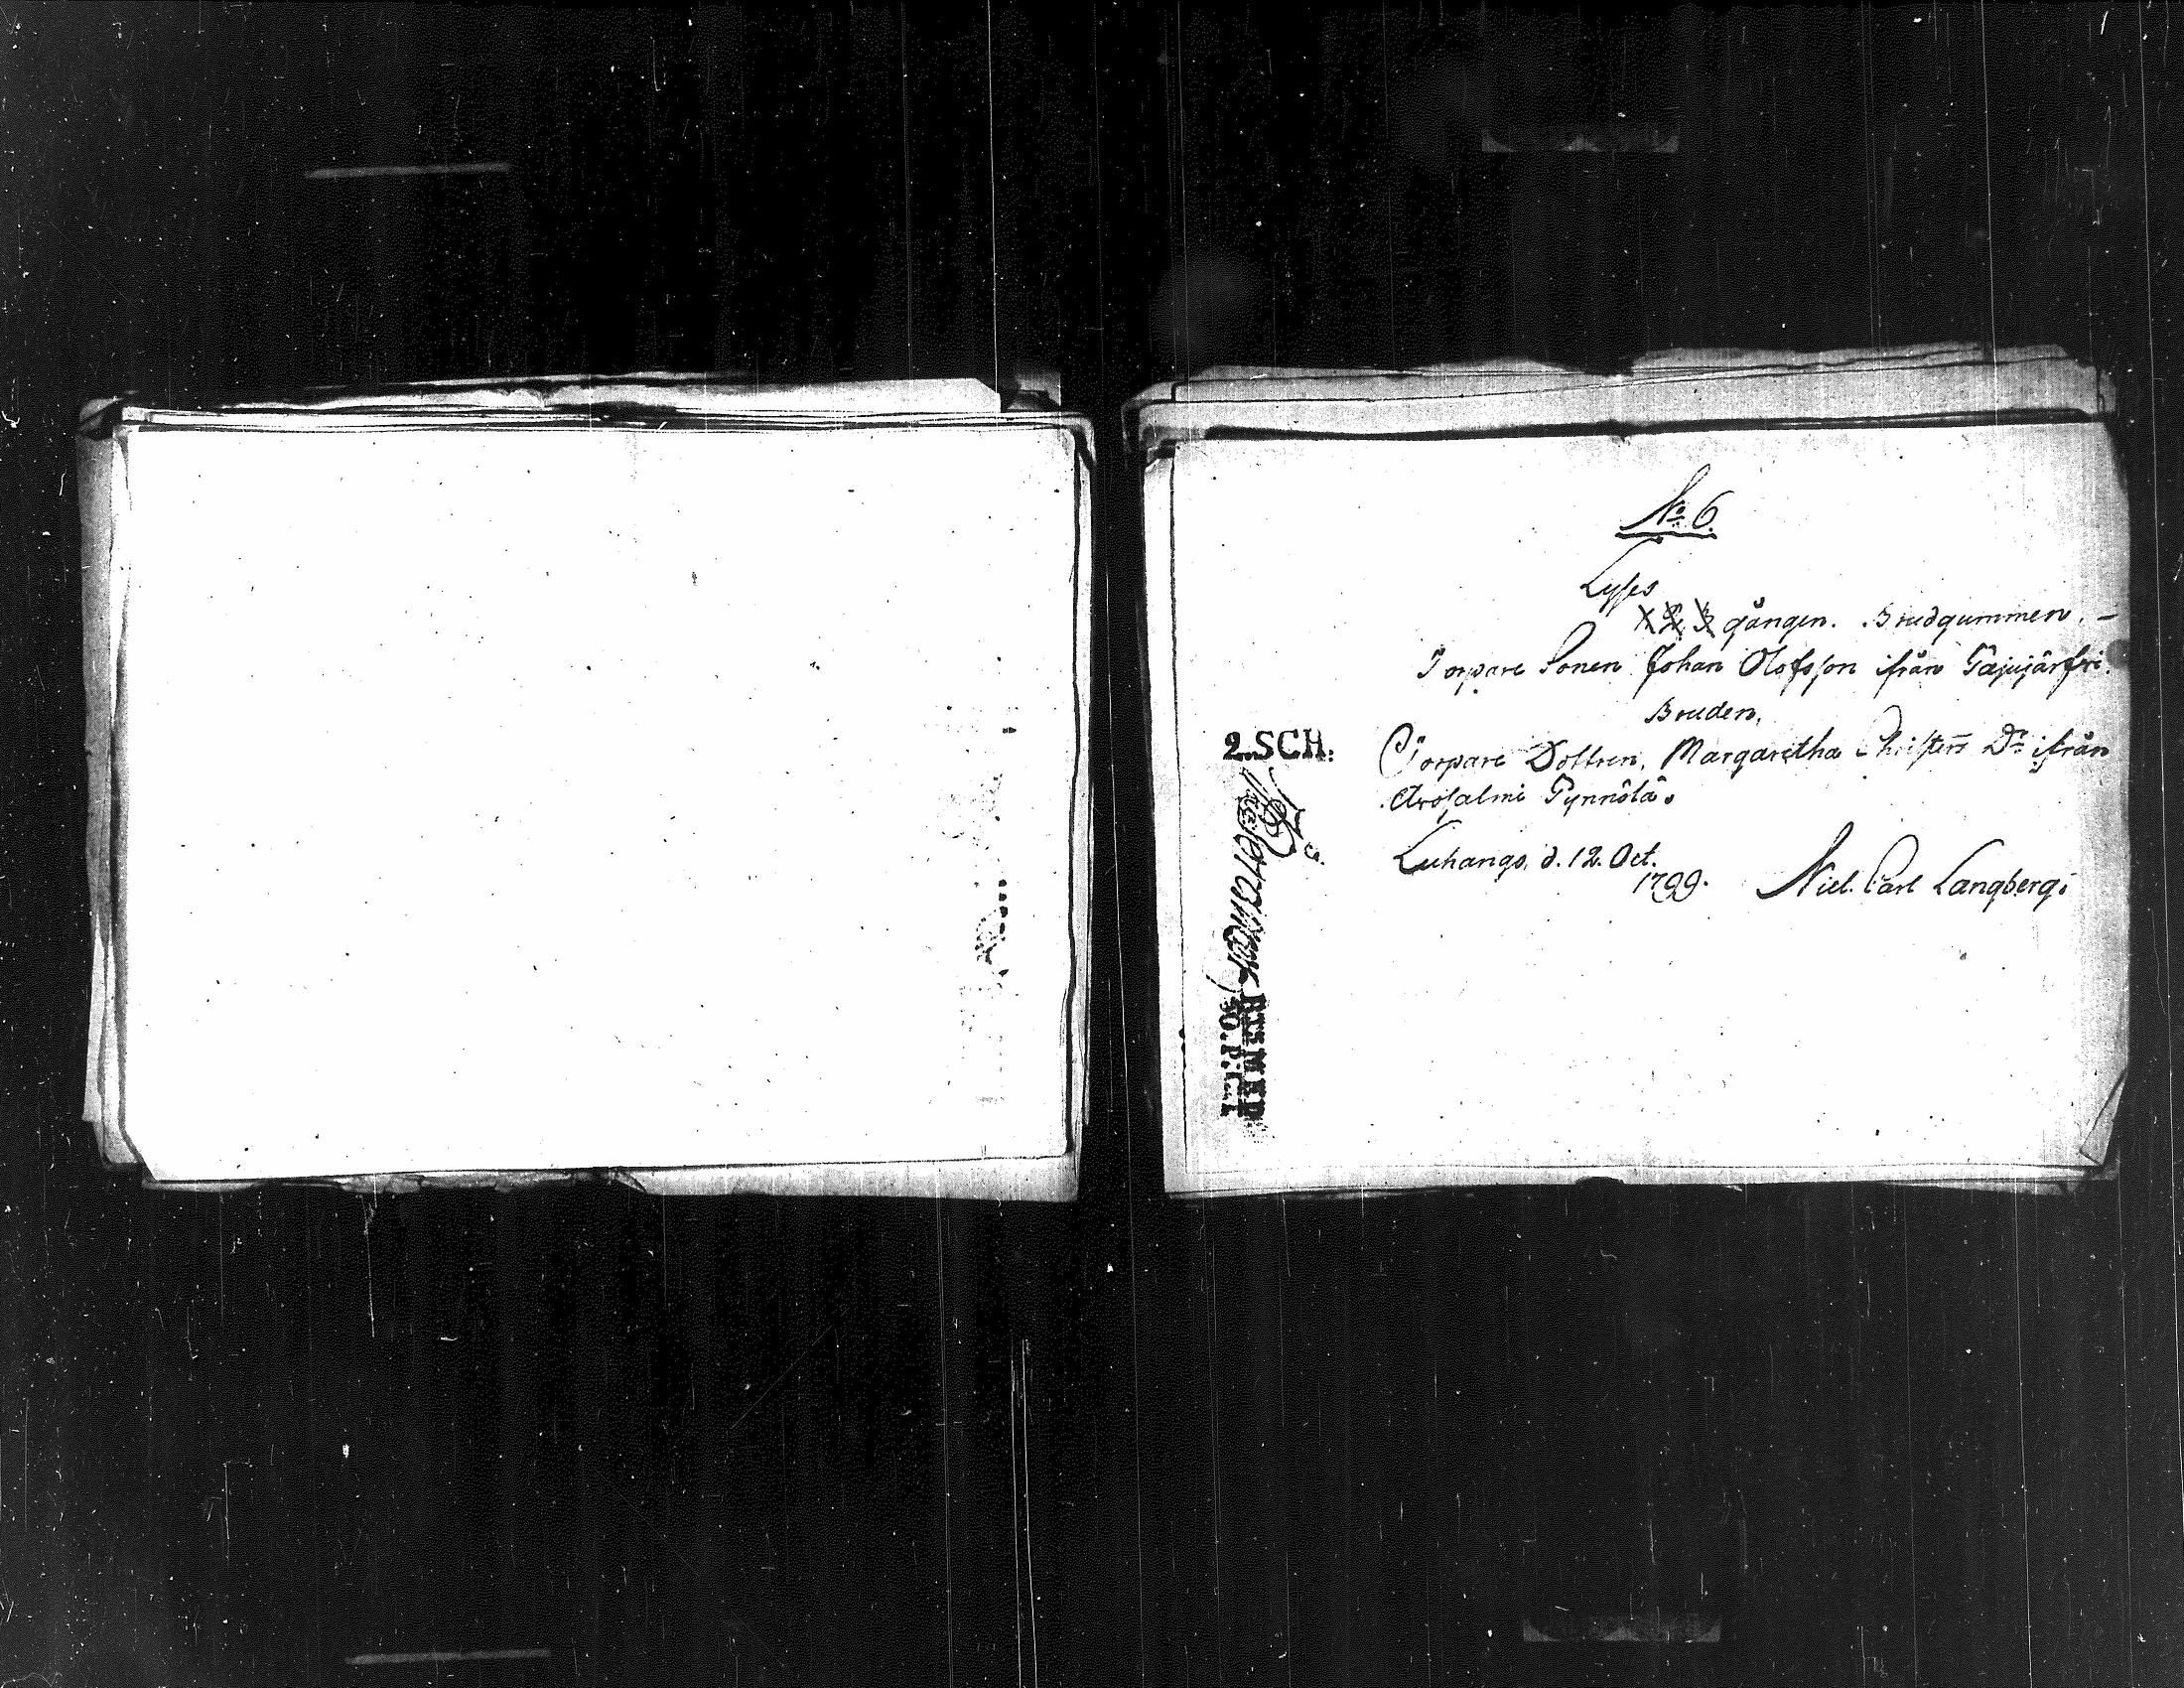 No 6.
Lyses
1. 2. 3 gången. Brudgummen. –
Torpare Sonen Johan Olofsson ifrån Tâjujärfwi.
Bruden,
2.SCH:
Torpare Dottren, Margaretha Christers Dr ifrån
Arosalmi Pynnölä.
Luhango, d. 12. Oct.
1799. Nicl. Carl Langberg.